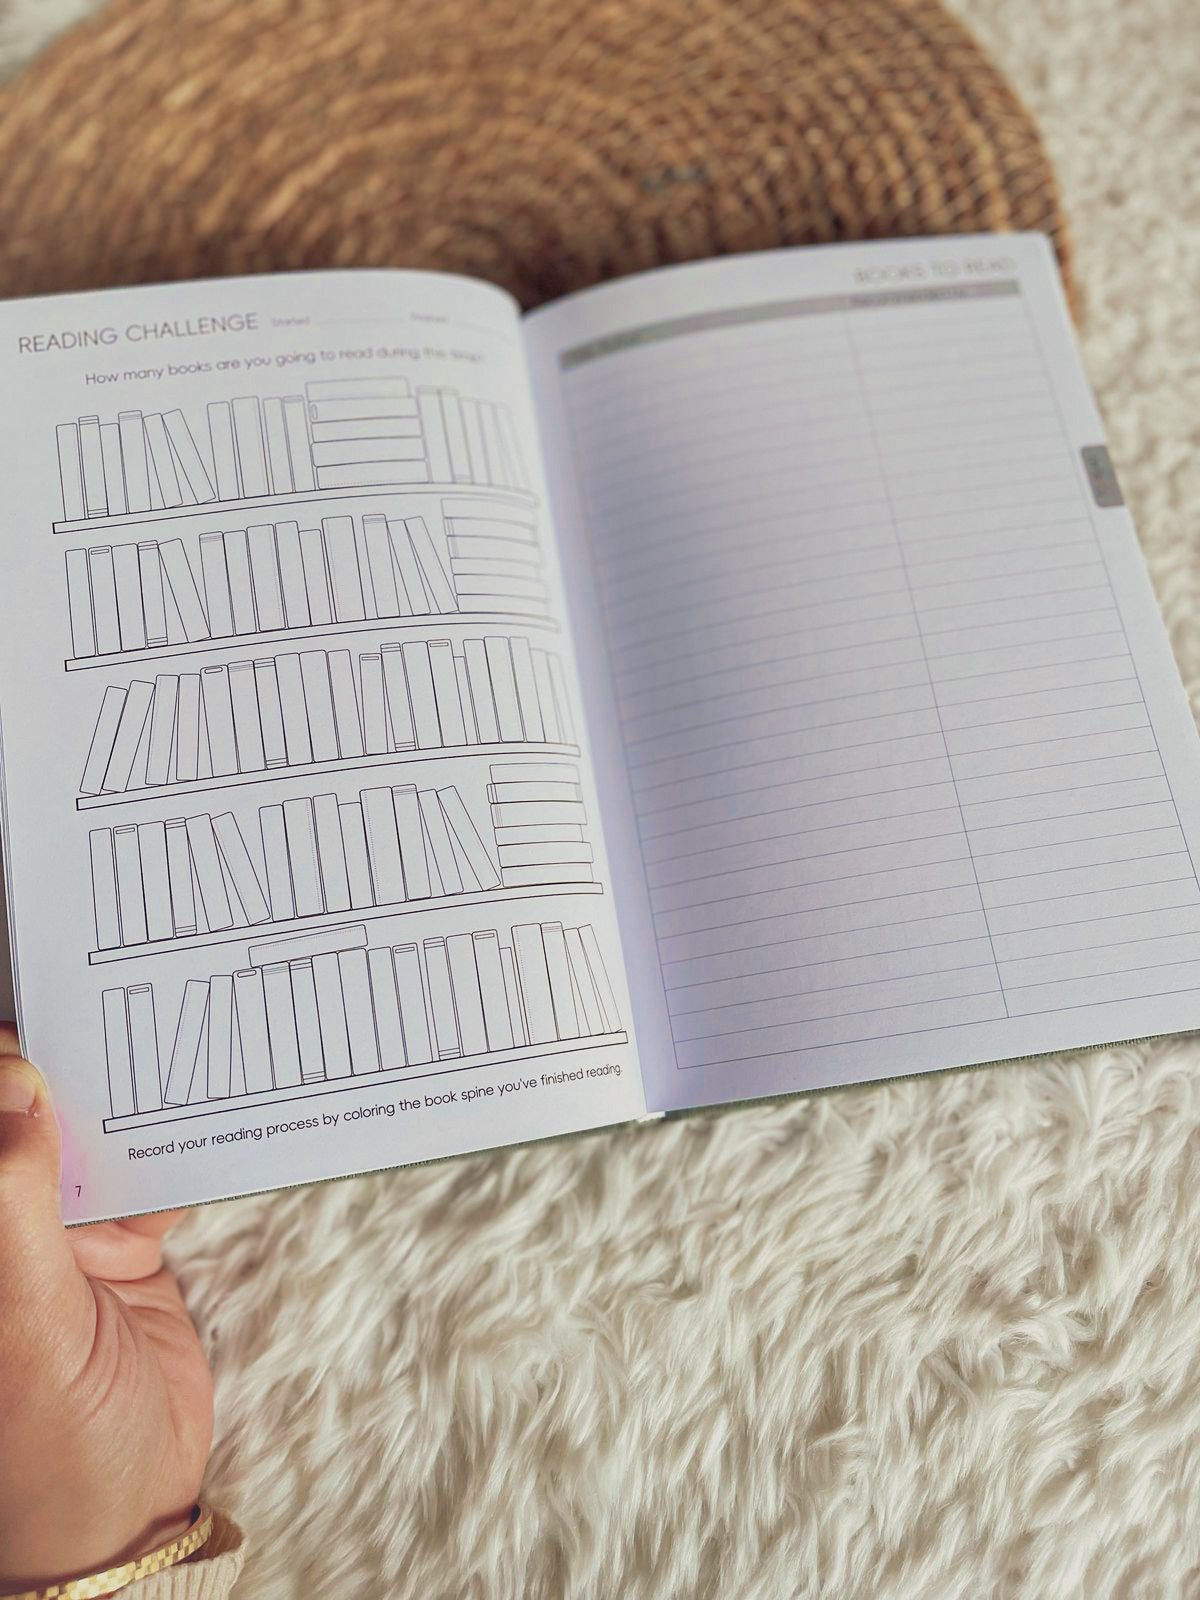 READING CHALLENGE Started
How many books are you going to read during this
Record your reading process by coloring the book spine you've finished reading.
7
BOOKS TO READ